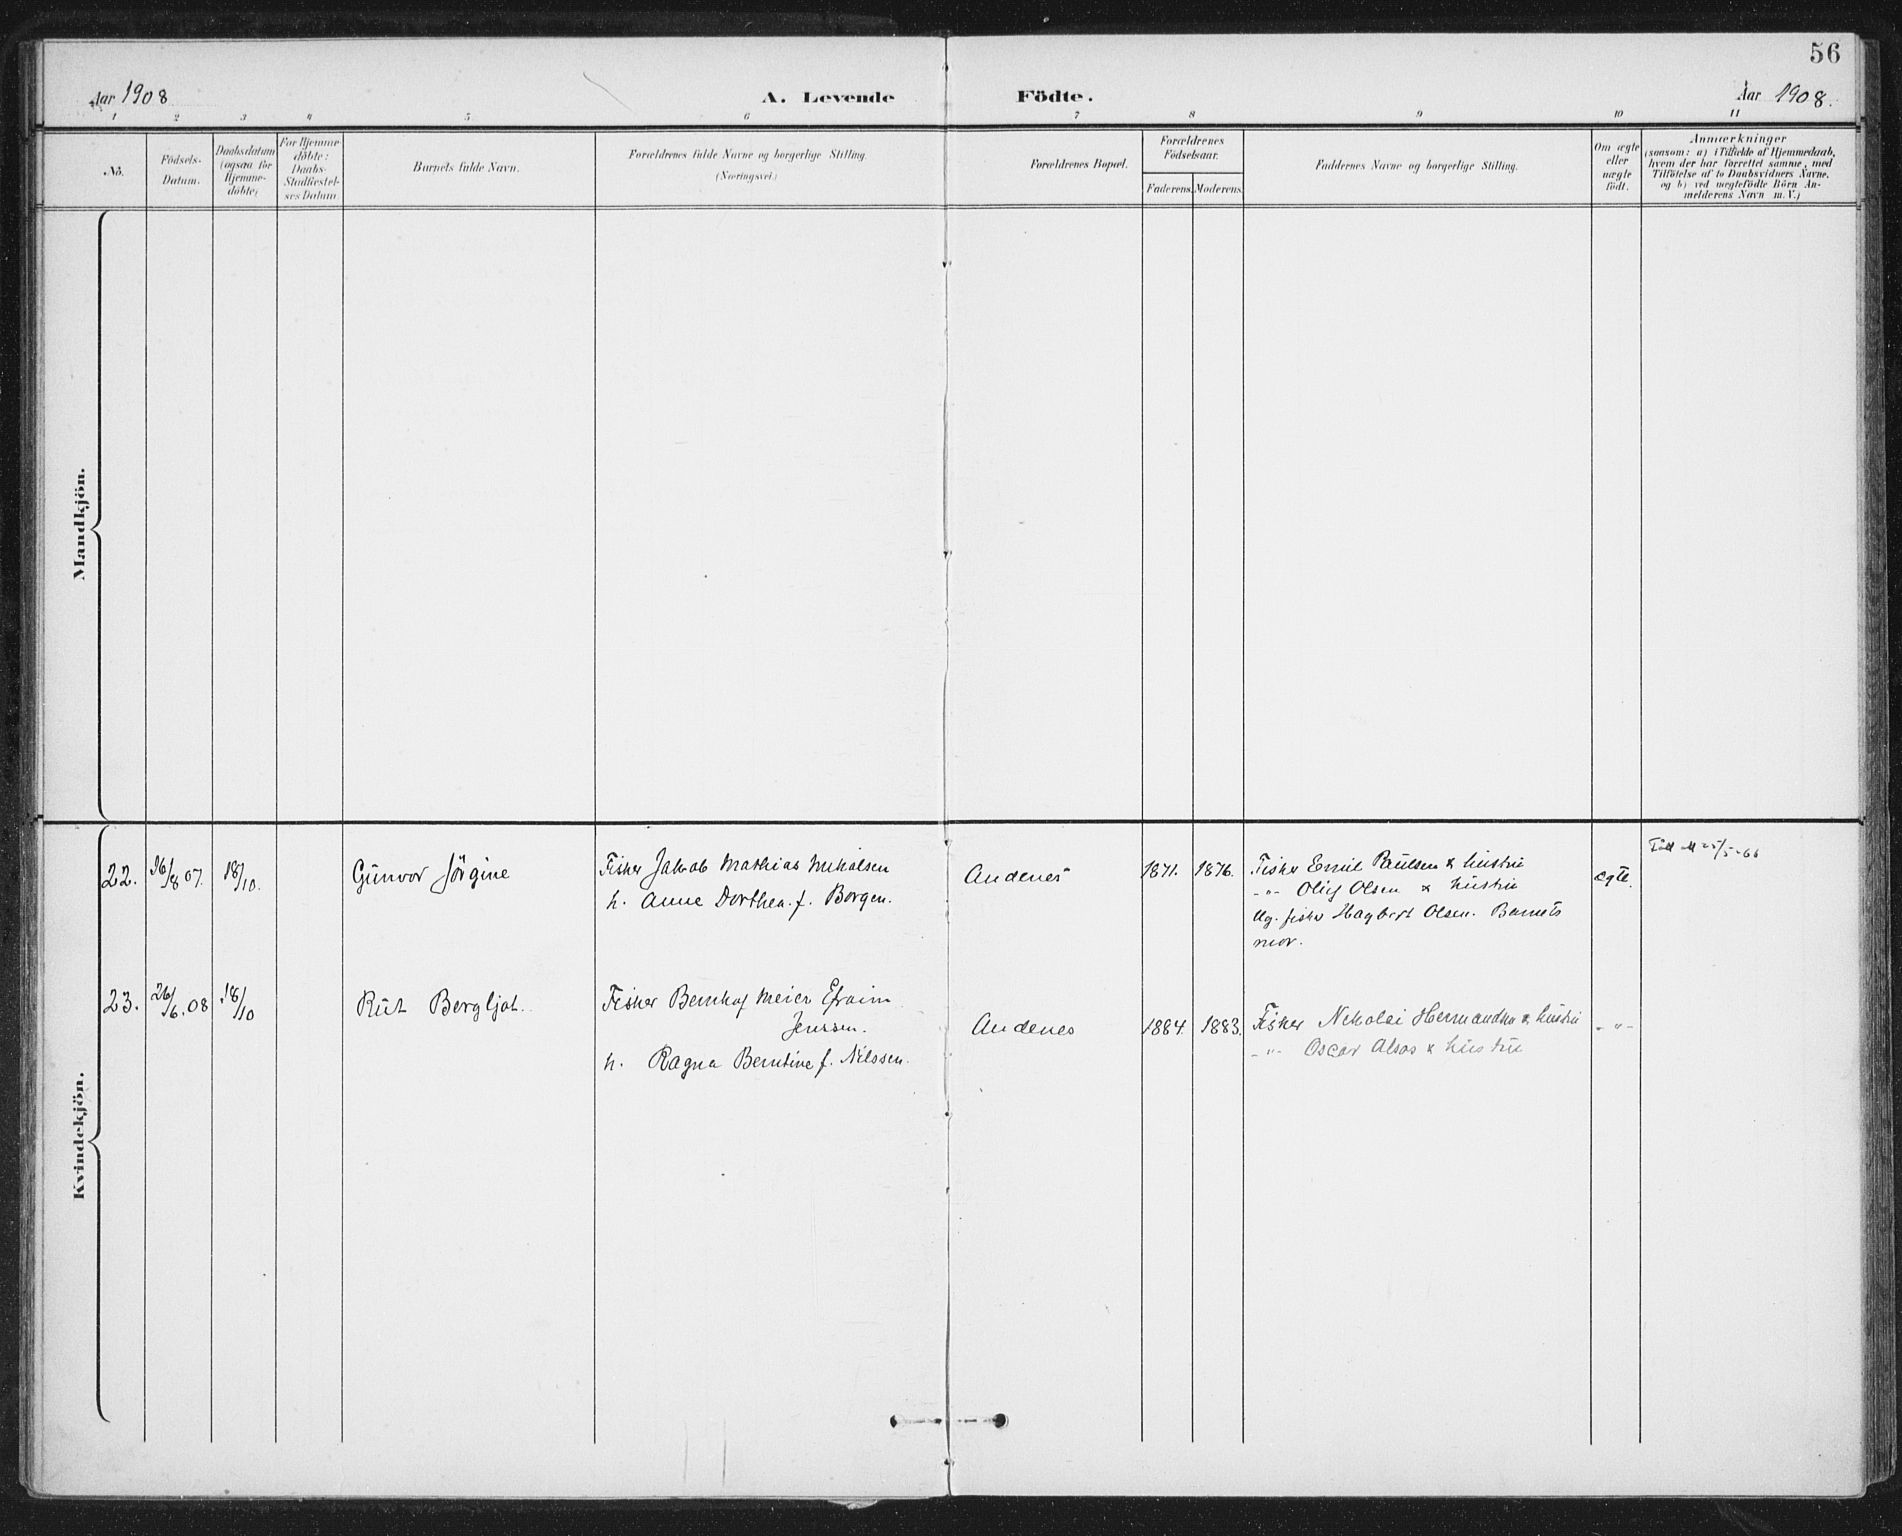 56
Aar 1908
A. Levende Födte.
Aar 1908.
1 2 3 4 5. 6 7 8 9 10 11
No.
Födsels-
Datum.
Daabsdatum
(ogsaa for
Hjemme-
döbte)
For Hjemme-
döbte:
Daabs-
Stadfæstel-
ses Datum
Barnets fulde Navn.
Forældrenes fulde Navne og borgerlige Stilling.
(Næringsvei.)
Forældrenes Bopæl.
Forældrenes
Födselsaar.
Faderens. Moderens.
Faddernes Navne og borgerlige Stilling.
Om ægte
eller
uægte
födt.
Anmærkninger
(saasom: a) i Tilfælde af Hjemmedaab,
hvem der har forrettet samme, med
Tilföielse af to Daabsvidners Navne.
og b) ved uægtefödte Börn An-
melderens Navn m. V.)
Mandkjön.
Kvindekjön.
22. 16/8 07. 18/10. Gunvor Jörgine
Fisker Jakob Mathias Nikolsen
h. Anne Dorthea. f. Borgen.
Andenes 1871. 1876.
Fisker Emil Paulsen & hustru
-"- Oluf Olsen & hustru
Ug. fisker Hagbert Olsen. Barnets
mor.
ægte.
25/5-66
23. 26/6.08 18/10 Rut Bergljot.
Fisker Bernhof Meier Efraim
Jenssen.
h. Ragna Berntine f. Nilssen.
Andenes 1884. 1883.
Fisker Nikolai Hermandsen & hustru
-"- Oscar Alsos & hustru
-"-